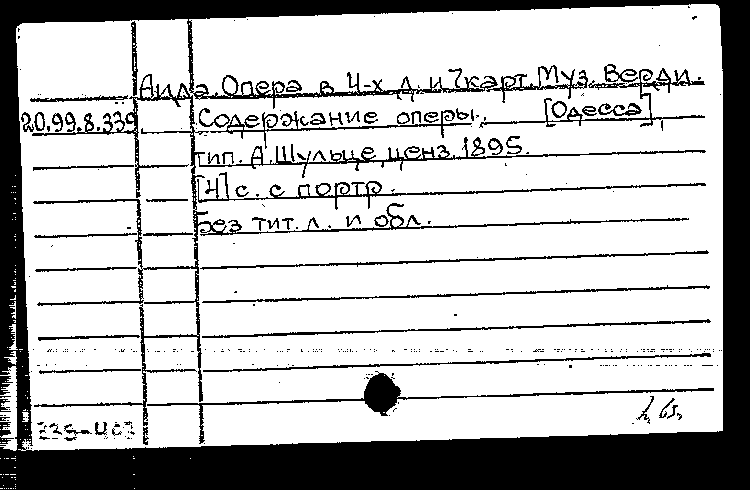 Аида. Опера в 4-х д. и 7 карт. Муз. Верди.
20.99.8.339 Содержание оперы. [Одесса],
тип. А. Шульце, ценз. 1895.
[4] с. с портр.
Без тит. л. и обл.